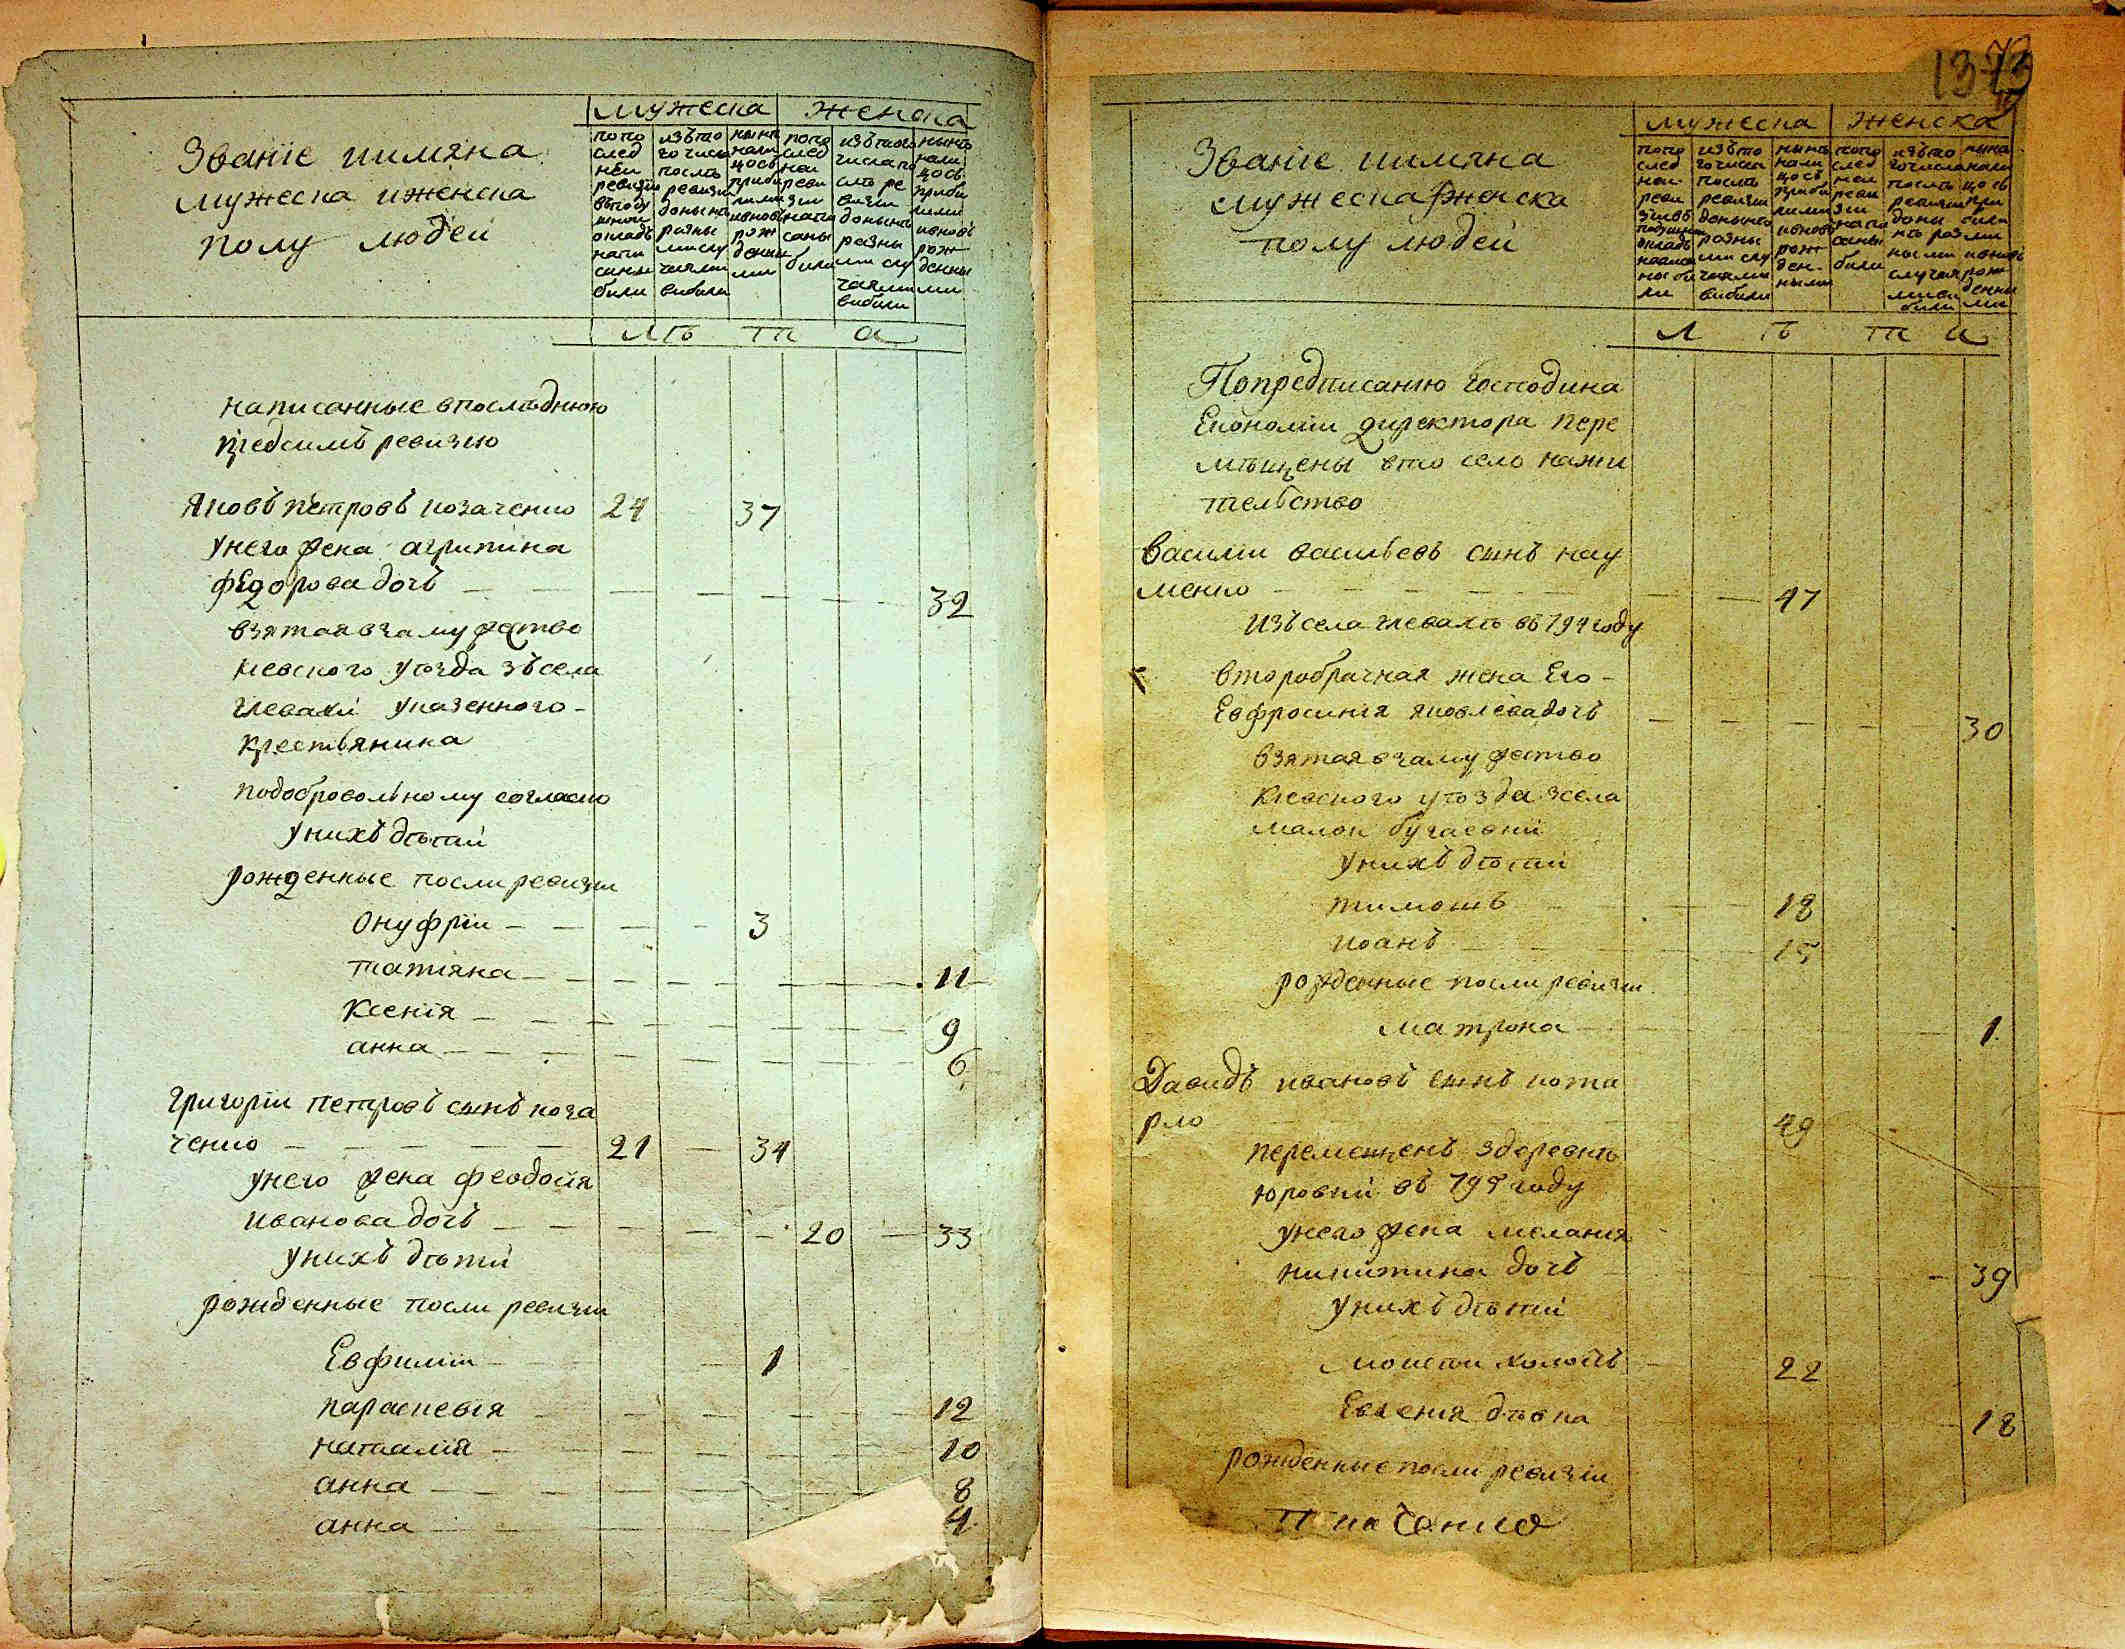 Званіе иимяна
мужеска иженска
полу людей
мужеска женска
попо след ней ревизіи вподу шной окладъ напи саны били
изъто го числа послъ ревизіи донынъ разны ми слу чаями вибили
нынъ нали цо съ приби лими ивновъ рож денны ми
попо след ней реви зіи напи саны били
изътого числа по слъ ре визіи донынъ разны ми слу чаями вибили
нынъ нали цо съ приби лими ивновъ рож денны ми
лѣ т а
написанные впослѣднюю
предсимъ ревизію
Яковъ петровъ козаченко 24 37
унего жена агрипина
федорова дочъ 32
взятая взамужство
киевского уѣзда зъсела
глевахи указенного
крестьянина
подобровольному согласію
унихъ дѣти
рожденные посли ревизіи
Онуфріи 3
татіяна 11
Ксенія 9
анна 6
Григоріи петровъ синъ коза
ченко 21 34
унего жена феодосія
иванова дочъ 20 33
унихъ дѣти
рожденные посли ревизіи
Евфиміи 1
параскевія 12
наталія 10
анна 8
анна 4
1373
Званіе иимяна
мужеска іженска
полу людей
мужеска женска
попо след ней реви зіивъ подушной окладъ написа ны би ли
изъто гочисла послъ ревизіи донынъ разны ми слу чаями вибили
нынъ нали цо съ приби лими ивновъ рож ден ными
попо след ней реви зіи напи саны били
изъто гочисла послъ ревизіи дони нъ раз ными случая миви били
нынъ нали цо съ при били ми ивновъ рож денны ми
л ѣ т а
Попредписанію господина
Економіи директора пере
мѣщены вто село нажи
тельство
василіи васильевъ синъ нау
менко 47
Изъ села глевахъ въ 794 году
второбрачная жена Его
Евфросинія яковлева дочъ 30
взятая взамужство
киевского уѣзда зсела
малой бугаевки
унихъ дѣти
тимошъ 18
иоанъ 15
рожденные посли ревизіи
матрона 1
Давидъ ивановъ синъ кота
рло 49
перемещенъ здеревнѣ
юровки въ 795 году
унего жена меланія
никитина дочъ 39
унихъ дѣти
моисеи холостъ 22
Евгенія дѣвка 18
рожденные посли ревизіи